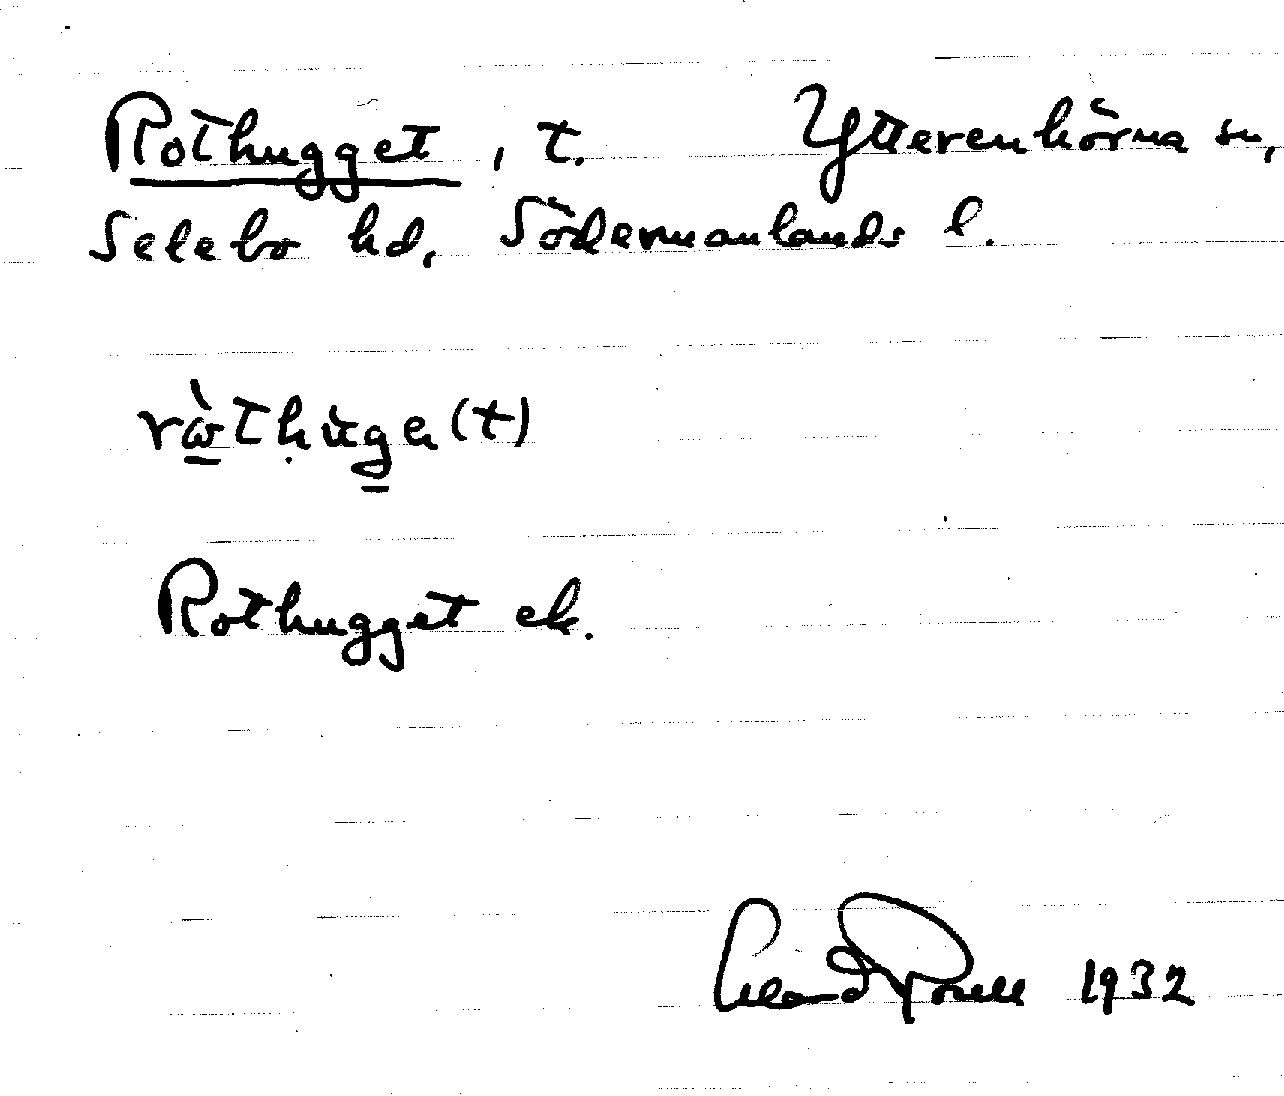 Rothugget, t. Ytterenhörna sn,
Selebo hd, Södermanlands l.
Rothugget ek.
1932